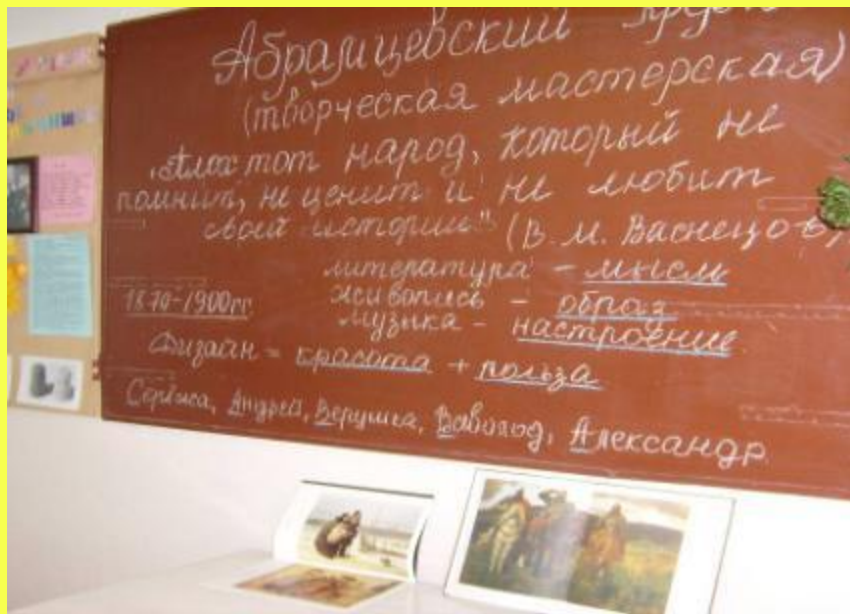 Абрамцевский
(творческая мастерская)
"Плох тот народ, который не
помнит, не ценит и не любит
своей истории" (В. М. Васнецов)
литература - мысль
1870-1900гг живопись - образ
музыка - настроение
Дизайн = красота + польза
Сережа, Андрей, Верушка, Вовolод, Александр